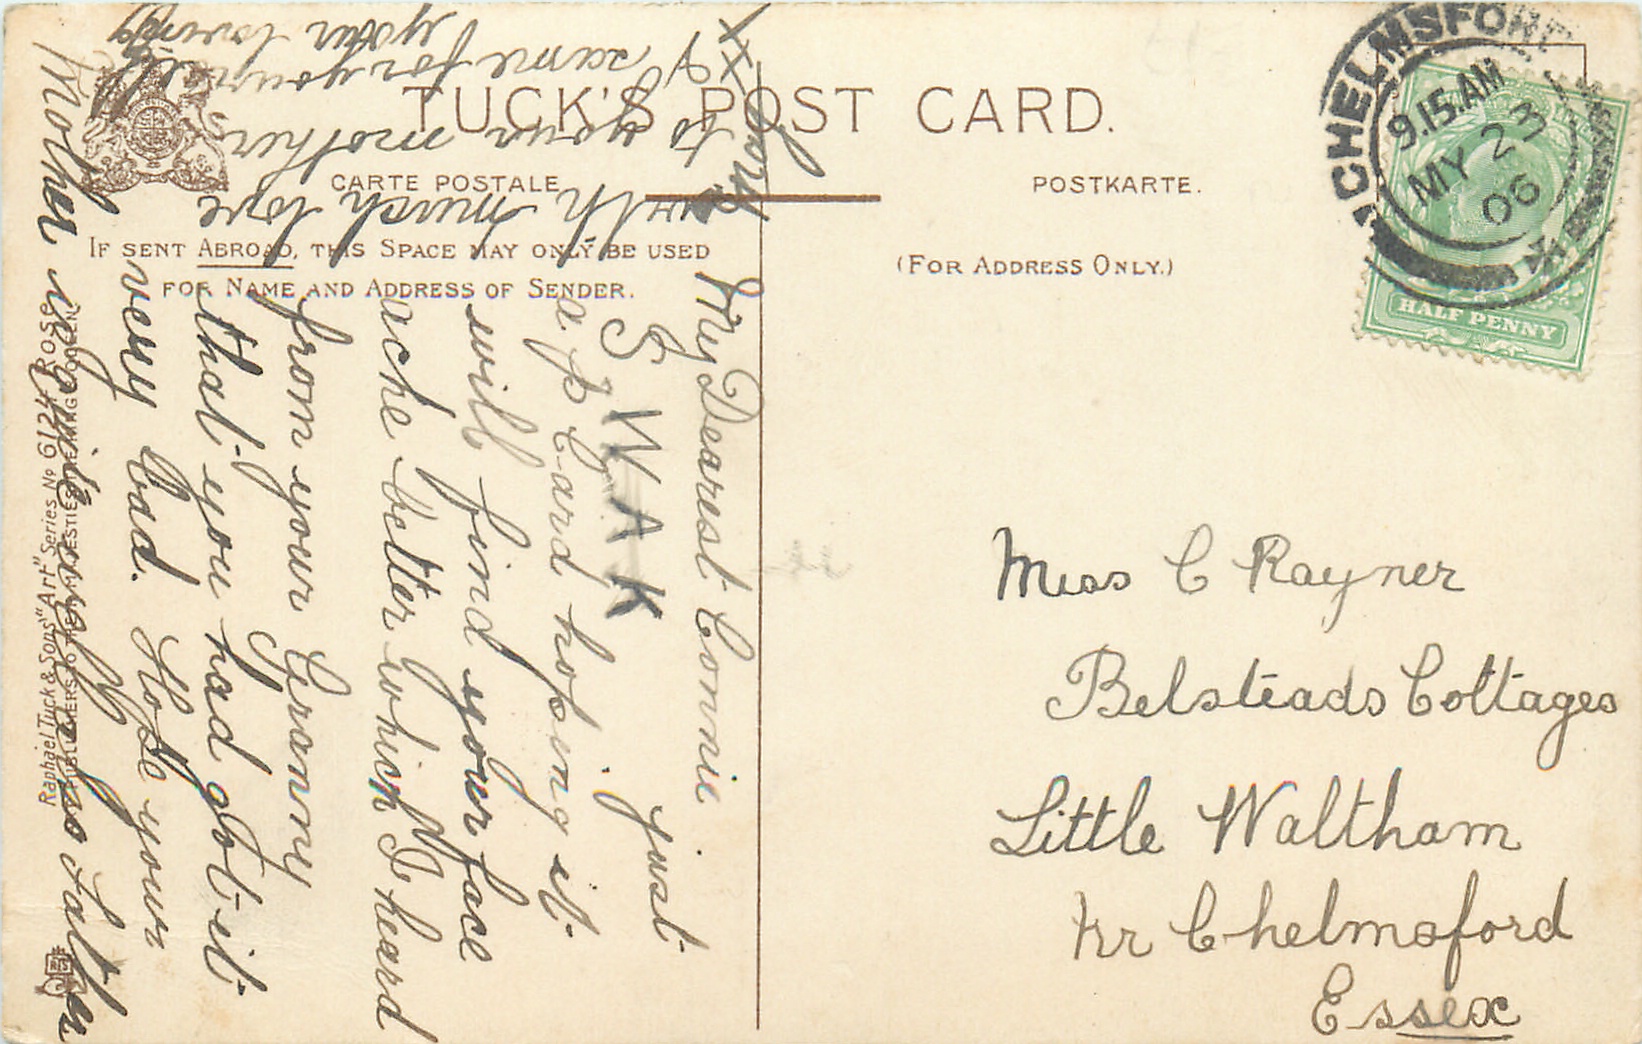 TUCK'S POST CARD.
CARTE POSTALE
POSTKARTE.
IF SENT ABROAD, THIS SPACE MAY ONLY BE USED
FOR NAME AND ADDRESS OF SENDER.
(FOR ADDRESS ONLY.)
CHELMSFORD
9.15.AM
MY 23
06
HALF PENNY
My Dearest Connie
just
S W A K
a p Card hoping it
will find your face
ache better which I heard
from your Granny
that you had got it
very bad. Hope your
Mother is quite well also Father
with much love
to your mother
same for yourself
your loving
Raphael Tuck & Sons' "Art" Series No 6124 ROSE
Miss C Rayner
Belsteads Cottages
Little Waltham
Nr Chelmsford
Essex